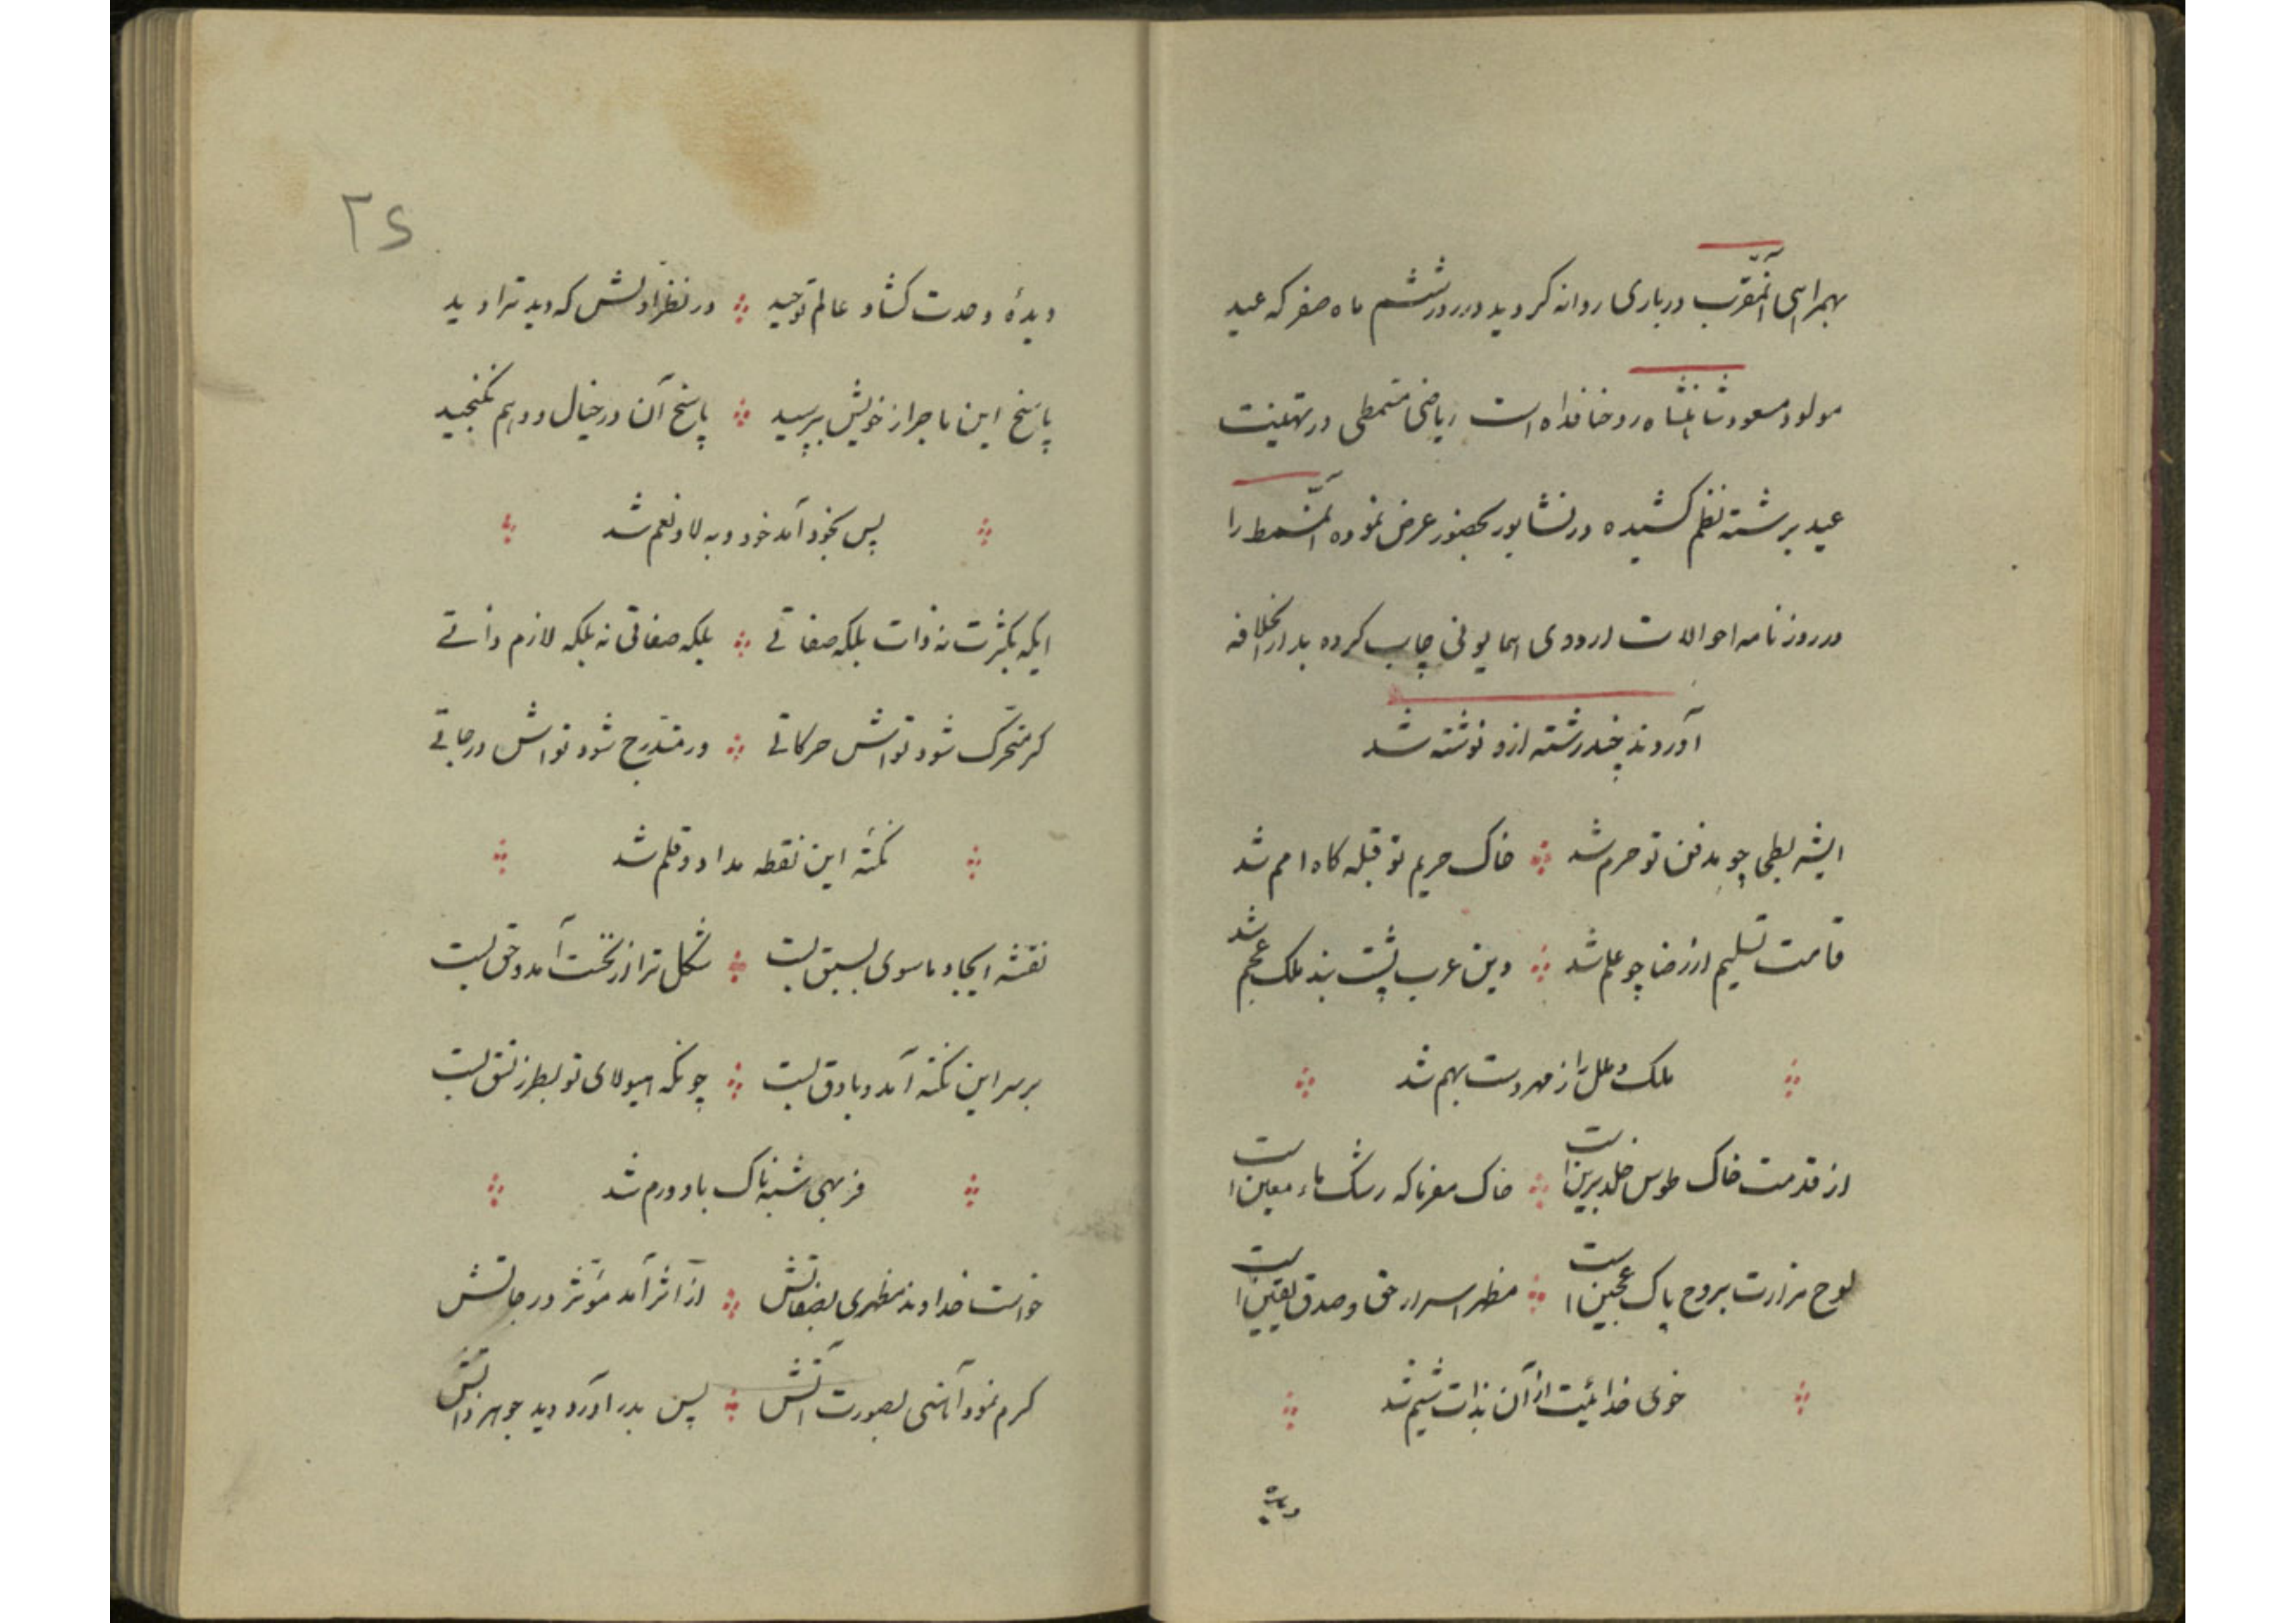 بهمراهی آنمقرب درباری روانه کردید در روز ششم ماه صفر که عید
مولود مسعود شاهنشاه روحنا فداه است ریاضی مسمطی در تهنیت
عید برشته نظم کشیده در نشابور بحضور عرض نموده آنمسمط را
در روزنامه احوالات اردوی همایونی چاپ کرده بدارالخلافه
آوردند چند رشته ازو نوشته شد
ایشه بطحی چو مدفن تو حرم شد خاک حریم تو قبله کاه امم شد
قامت تسلیم از رضا چو علم شد دین عرب پشت بند ملک عجم شد
ملک و ملل را ز مهر دست بهم شد
از قدمت خاک طوس خلد برین است خاک مغرناکه رشک ماء معین است
لوح مزارت بروح پاک عجین است مظهر اسرار حق و صدق یقین است
خوی خدائیت از آن بذات شیم شد
دیده
۲۶
دیدهٔ وحدت کشاد عالم توحید در نظر اولش که دید ترا دید
پاسخ این ماجرا ز خویش بپرسید پاسخ آن در خیال و وهم نکنجید
پس بخود آمد خود و به لا و نعم شد
ایکه بکثرت نه ذات بلکه صفاتی بلکه صفاتی نه بلکه لازم ذاتی
کر متحرک شود تواش حرکاتی ور متدرج شود تواش درجاتی
نکتهٔ این نقطه مداد و قلم شد
نقشه ایجاد ماسوی بسبق بست شکل ترا از نخست آمد و حق بست
بر سر این نکته آمد و بادق بست چونکه هیولای تو بطرز نسق بست
فربهی شبهناک با دورم شد
خواست خداوند مظهری بصفاتش از اثر آمد مؤثر درجاتش
کرم نمود آهنی بصورت آتش پس بدر آورد دید جوهر ذاتش